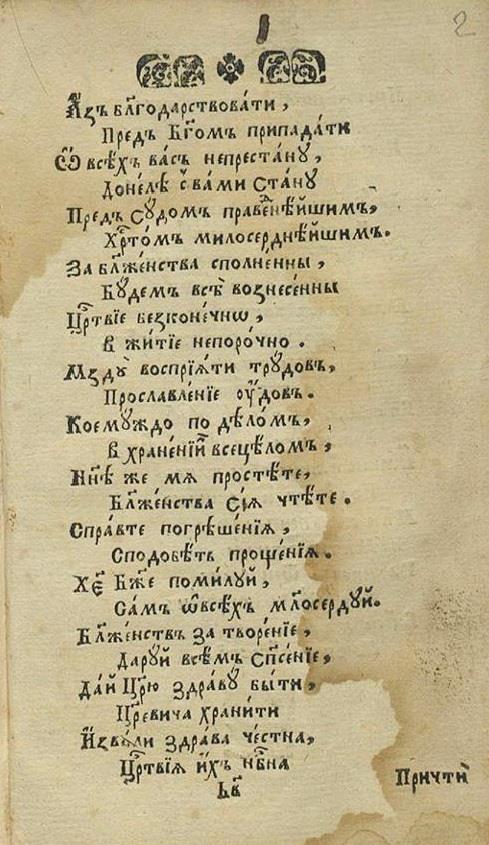 2
А҆́зъ бл҃годарствова́ти,
Предъ Бг҃омъ припада́ти
Ѡ҆ всѣ́хъ ва́съ непреста́нꙋ,
Донелѣ с̾ ва́ми ста́нꙋ
Предъ сꙋдомъ праве́нѣйшимъ,
Хрⷭ҇то́мъ милосерднѣ́йшимъ.
За бл҃же́нства сполне́нны,
Бꙋ́демъ всѣ̀ вознесе́нны
Црⷭ҇твїе безконе́чнѡ,
в житїе непоро́чно.
Мздꙋ̀ воспрїѧ́ти трꙋдовъ,
Прославле́нїе оу҆́довъ.
Коемꙋ́ждо по дѣло́мъ,
в хране́нїй всецѣ́ломъ,
Нн҃ѣ же мѧ простѣ́те,
Бл҃же́нства сїѧ̀ чтѣ́те.
Спра́вте погрѣше́нїѧ,
Сподобѣ́ть проще́нїѧ.
Хе҃ Бж҃е поми́лꙋй,
Са́мъ ѡ҆ всѣ́хъ мл҃осе́рдꙋй.
Бл҃же́нствъ за творе́нїе,
Дарꙋ́й всѣ́мъ сп҃се́нїе,
Да́й Цр҃ю здра́вꙋ бы́ти,
Цр҃евича храни́ти
И҆зво́ли здра́ва че́стна,
Црⷭ҇твїѧ и҆́хъ нб҃на
Причти́